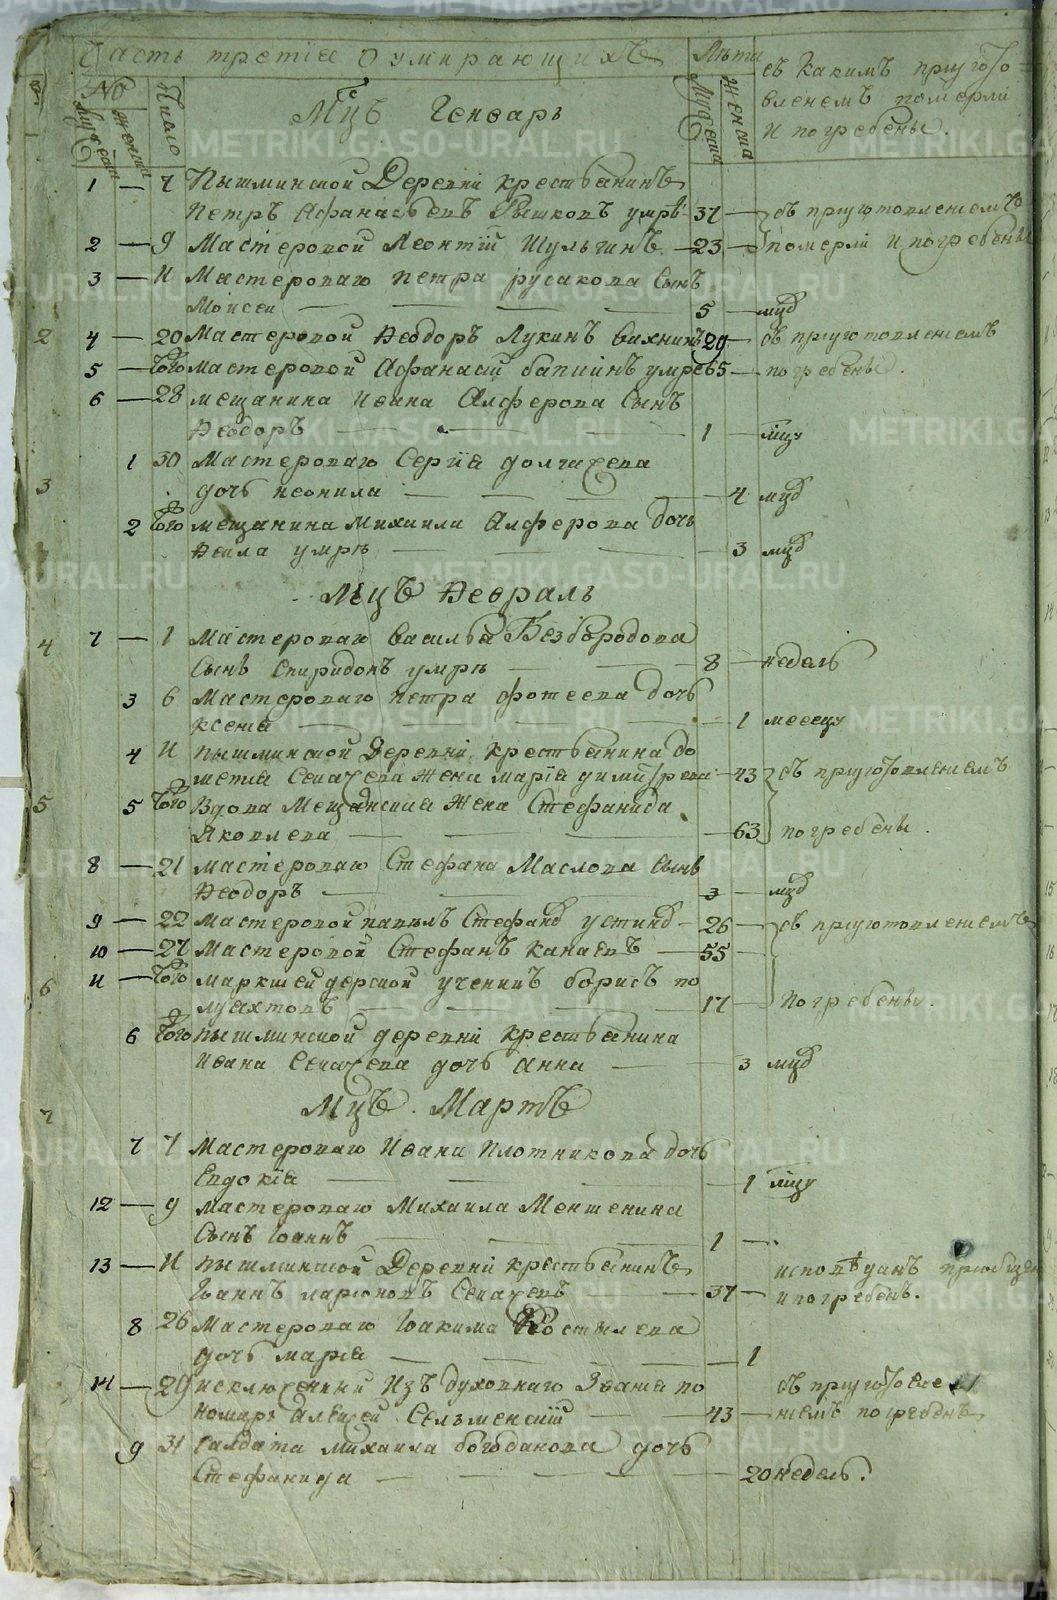 Часть третїя О умирающихъ Лѣта съ какимъ пригото
вленіемъ померли
и погребены.
№ Мужеска Женска Число Мужеска Женска
Мцъ Генварь
1 — 7 Пышминской Деревни крестьянинъ
Петръ Афанасьевъ умре 37 — съ приуготовленіемъ
2 — 9 Мастеровой Леонтїй Шульгинъ — 23 — померли и погребены
3 — 11 Мастероваго петра русакова Сынъ
Моисей — 5 — мцъ
4 — 20 Мастеровой Ѳеодоръ Лукинъ 29 — съ приуготовленіемъ
5 — того мастеровой Афанасїй умре 65 — погребены.
6 — 28 мещанина ивана Алферова Сынъ
Ѳеодоръ — 1 — мцу
1 30 Мастероваго Сергїя долгачева
дочь неонила — 4 мцъ
2 того мещанина михаила Алферова дочь
умре — 3 мцъ
Мцъ Ѳевраль
7 — 1 Мастероваго василья Безбородова
Сынъ Спиридонъ умре — 8 — недель
3 6 Мастероваго петра фотеева дочь
ксенїя — 1 месецу
4 11 пышминской Деревни крестьянина до
метїя жена марїя димитрева 43 съ приуготовленіемъ
5 того Вдова Мещанская жена Стефанида
Яковлева — 63 погребены.
8 — 21 мастероваго Стефана Маслова Сынъ
Ѳеодоръ — 3 — мцъ
9 — 22 мастеровой павелъ Стефановъ устиновъ — 26 — съ приуготовленіемъ
10 — 27 Мастеровой Стефанъ канаевъ — 55 —
11 — того маркшейдерской ученикъ борисъ по
луяхтовъ — 17 — погребены.
6 того пышминской деревни крестьянина
ивана дочь анна — 3 мцъ
Мцъ. Мартъ
7 7 Мастероваго Ивана плотникова дочь
Евдокїя — 1 мцу
12 — 9 мастероваго Михаила Меншенина
Сынъ Іоаннъ — 1 —
13 — 11 пышминской Деревни крестьянинъ
Іоаннъ ларїоновъ — 37 — исповѣданъ прїобщенъ
и погребенъ.
8 26 Мастероваго Іоакима Костылева
дочь марїя — 1
14 — 29 исключенный Изъ духовнаго Званїя по
номарь Алексей Сельменскїй — 43 — съ приуготовле
ніемъ погребенъ
9 31 Салдата михаила богобанова дочь
Стефанида — 20 недель.
2
3
4
5
6
7
METRIKI.GASO-URAL.RU